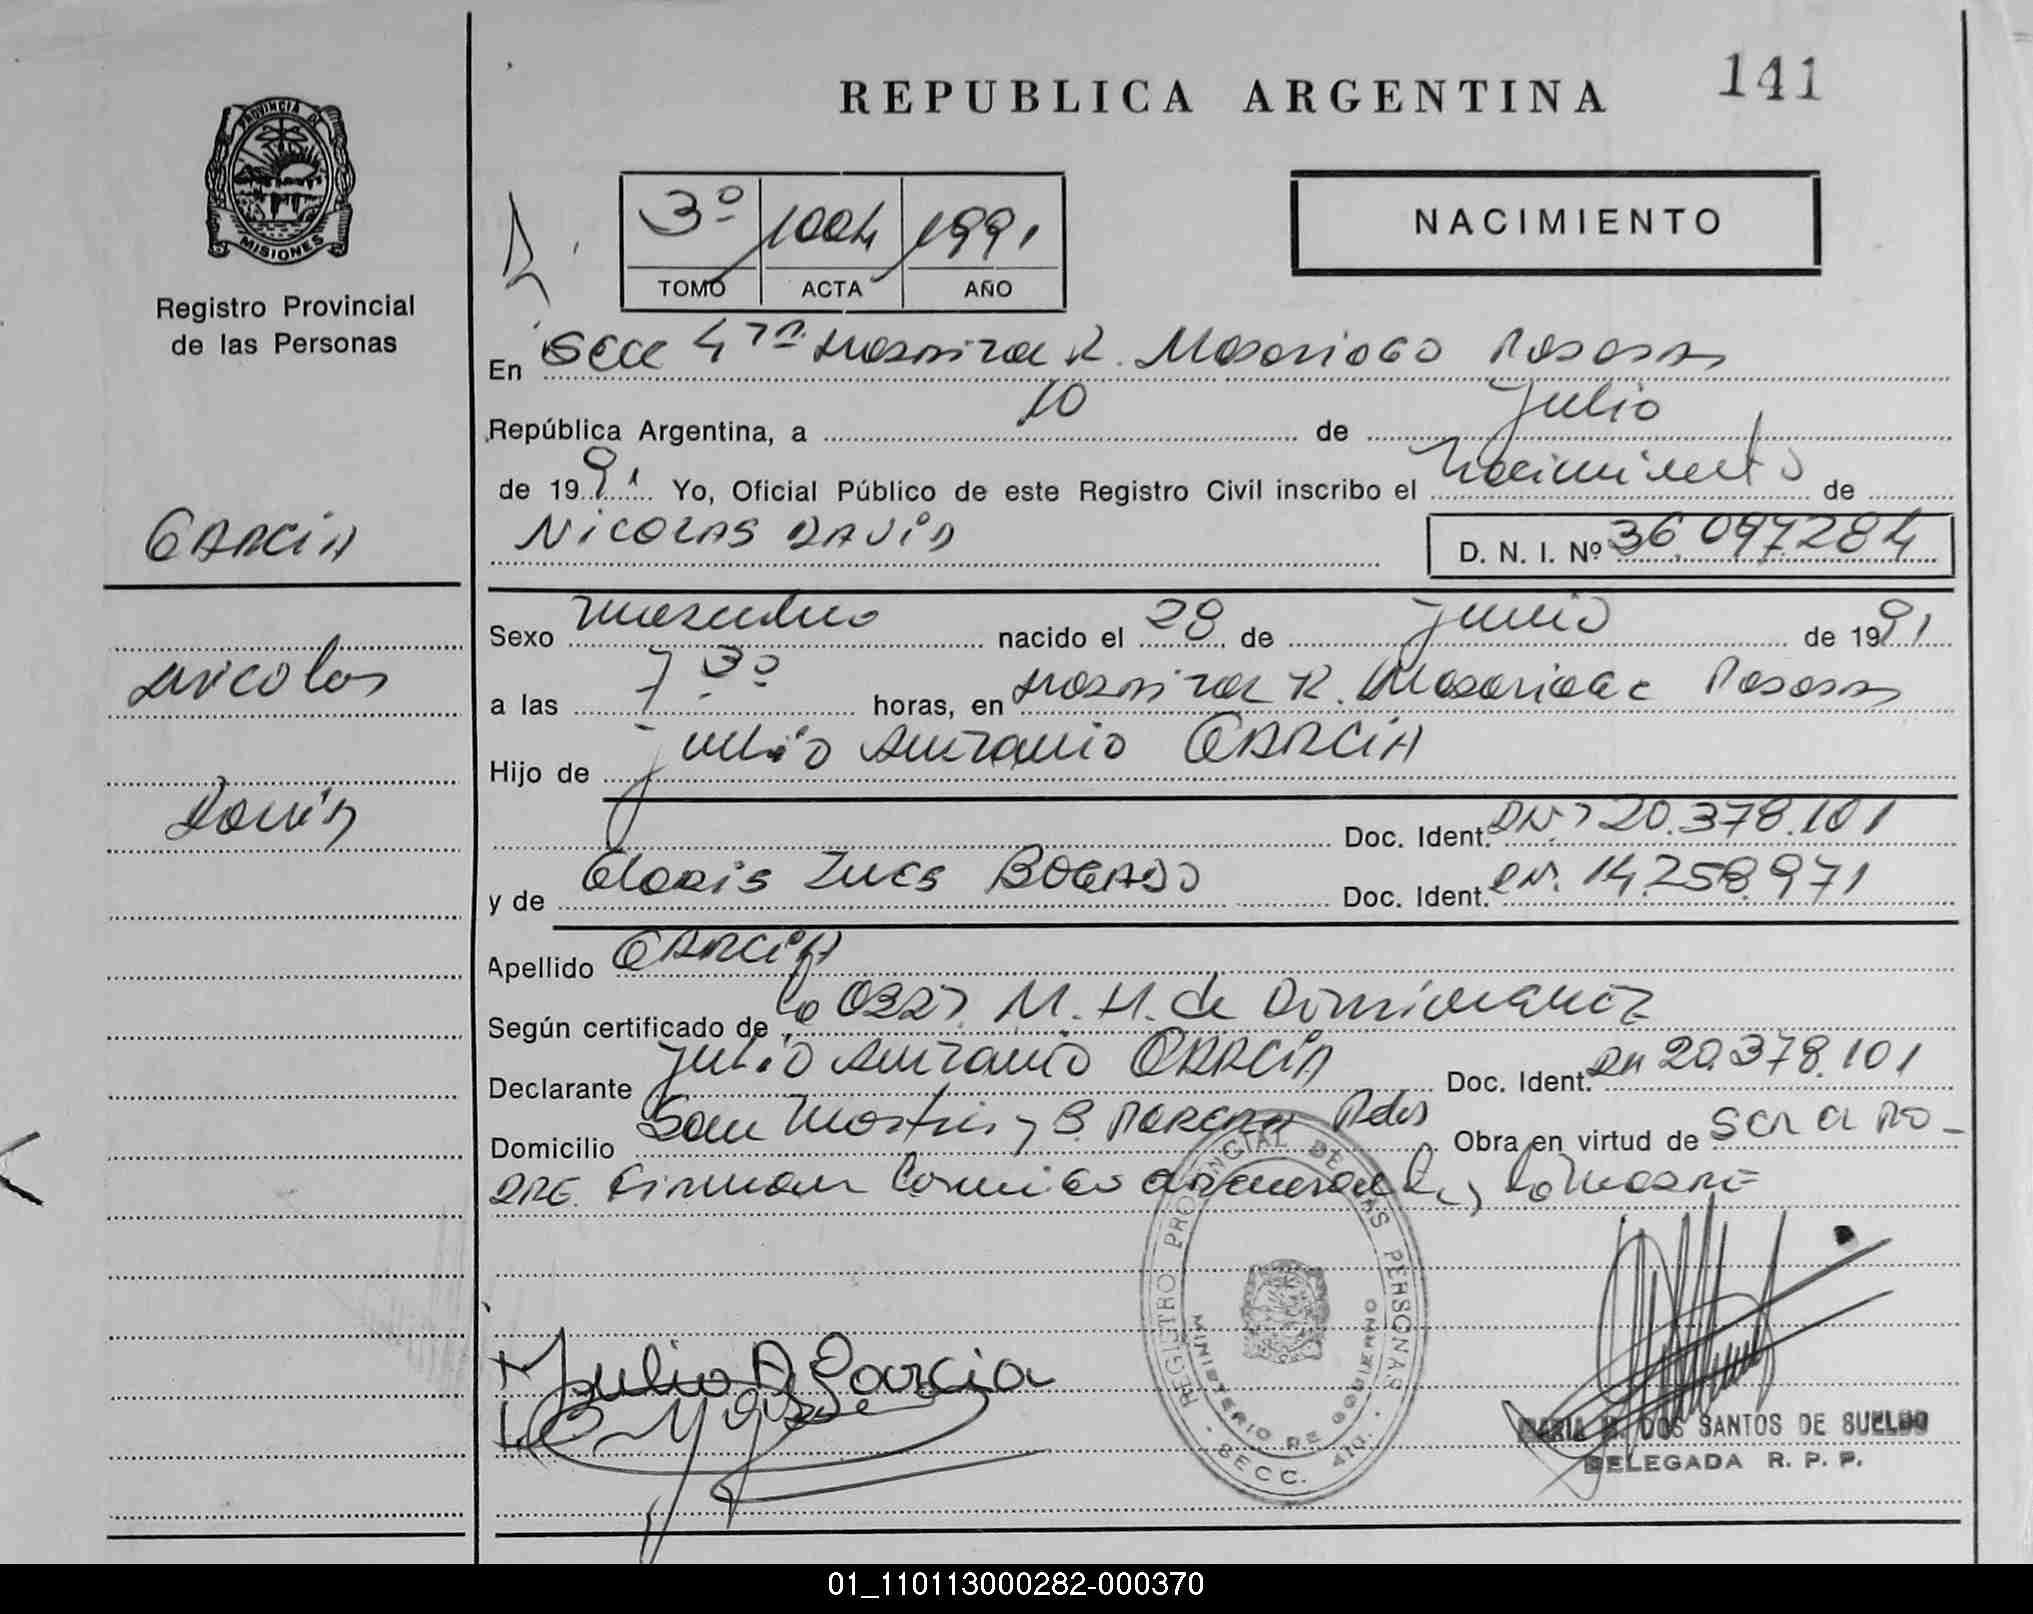 REPUBLICA ARGENTINA 141
PROVINCIA DE
MISIONES
Registro Provincial
de las Personas
3º 1004 1991
TOMO ACTA AÑO
NACIMIENTO
En Secc 4ta Hospital R. Madariaga Posadas
República Argentina, a 10 de Julio
de 1991 Yo, Oficial Público de este Registro Civil inscribo el Nacimiento de
NICOLAS DAVID D. N. I. Nº 36.097.284
GARCIA
Sexo Masculino nacido el 28 de Junio de 1991
Nicolas
a las 7 30 horas, en Hospital R. Madariaga Posadas
Hijo de Julio Antonio GARCIA
David
Doc. Ident. DNI 20.378.101
y de Gloria Ines BOGADO Doc. Ident. 14.258.971
Apellido GARCIA
Según certificado de M. H. de
Declarante Julio Antonio GARCIA Doc. Ident. DN 20.378.101
Domicilio San Martin y Pdas Obra en virtud de ser el PA-
DRE. Firman la madre
REGISTRO PROVINCIAL DE LAS PERSONAS
MINISTERIO DE GOBIERNO
SECC. 4ta.
Julio A Garcia
MARIA DOS SANTOS DE SUELDO
DELEGADA R. P. P.
01_110113000282-000370